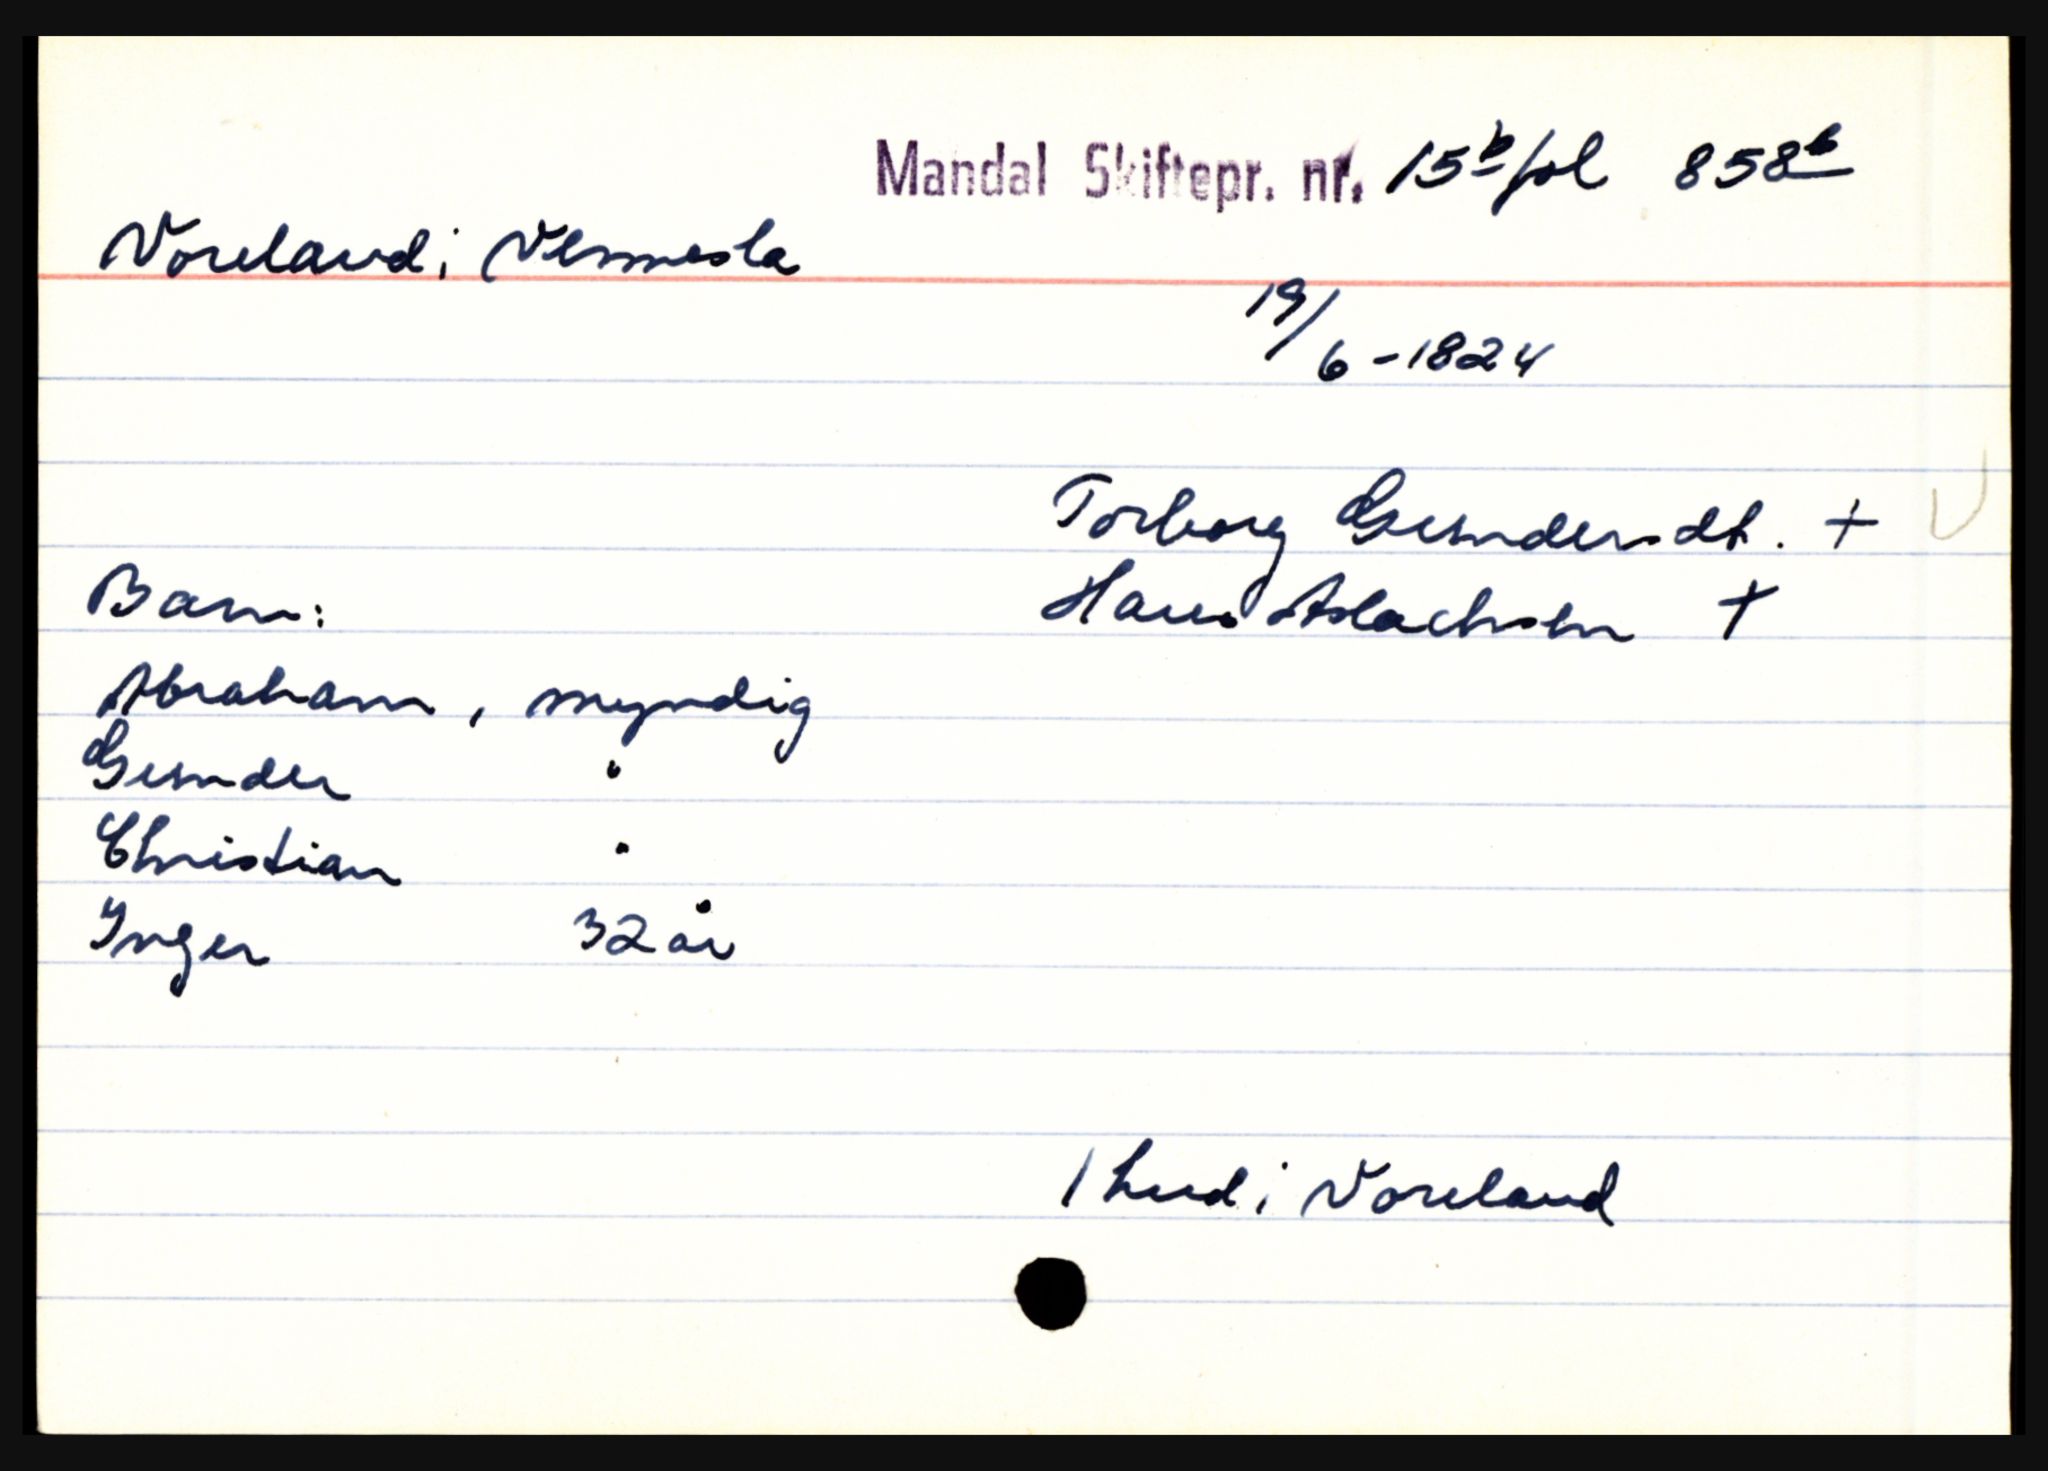 Mandal Skiftepr. nr. 15b fol 858b
Voreland i Vennesla
19/6-1824
Torborg Gunderdt. +
Barn: Hans Aslachsen +
Abraham, myndig
Gunder "
Christian "
Inger 32 år
1 hud i Voreland